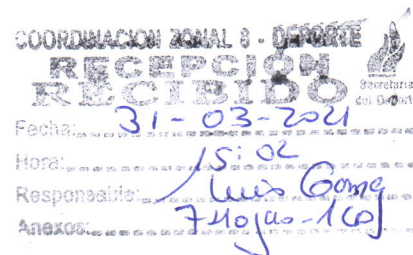 COORDINACION ZONAL 8 - DEPORTE
RECEPCIÓN
RECIBIDO
Secretaría
del Deporte
Fecha: 31-03-2021
Hora: 15:02
Responsable: Luis
Anexos: 7 Hojas - 1